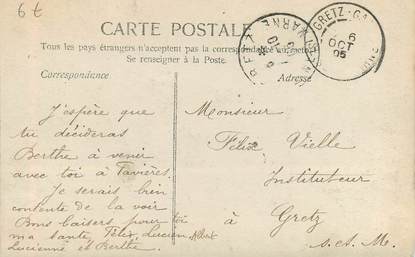 6t
CARTE POSTALE
Tous les pays étrangers n'acceptent pas la correspondance au recto
Se renseigner à la Poste.
Correspondance
Adresse
GRETZ-
6
OCT
05
MARNE
J'espère que
tu décideras
Berthe à venir
avec toi à Favières.
Je serais bien
contente de la voir
Bons baisers pour toi
ma tante, Félix, Lucien, Albert
Lucienne et Berthe
Monsieur
Félix Vielle
Instituteur
à Gretz
S. et M.